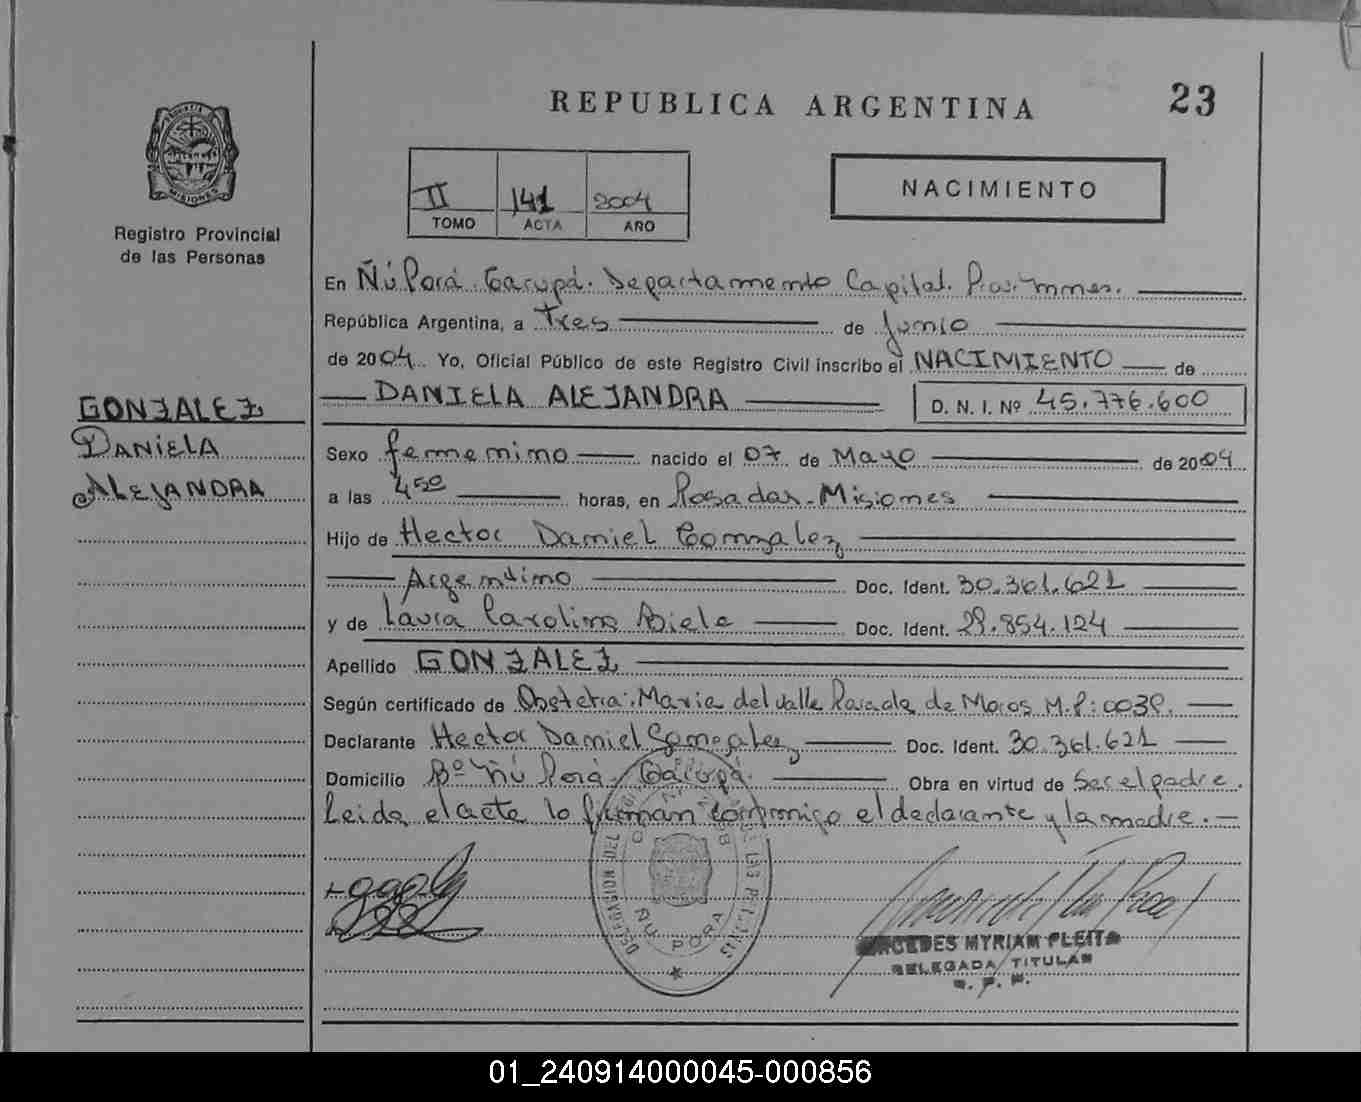 REPUBLICA ARGENTINA
23
MISIONES
Registro Provincial
de las Personas
II 141 2004
TOMO ACTA AÑO
NACIMIENTO
En Ñú Porá. Garupá. Departamento Capital. Pcia. Mnes.
República Argentina, a tres de Junio
de 2004. Yo, Oficial Público de este Registro Civil inscribo el NACIMIENTO de
DANIELA ALEJANDRA D. N. I. Nº 45.776.600
GONZALEZ
DANIELA
ALEJANDRA
Sexo femenino nacido el 07 de Mayo de 2004
a las 450 horas, en Posadas-Misiones
Hijo de Hector Daniel Gonzalez
Argentino Doc. Ident. 30.361.621
y de Laura Carolina Doc. Ident. 29.854.124
Apellido GONZALEZ
Según certificado de Obstetra: Maria del Valle de M.P: 
Declarante Hector Daniel Gonzalez Doc. Ident. 30.361.621
Domicilio Bº Ñú Porá. Garupá. Obra en virtud de Ser el padre.
Leida el acta lo firman conmigo el declarante y la madre.-
DELEGACION DEL
ÑU PORA
MYRIAM PLEITA
DELEGADA TITULAR
01_240914000045-000856